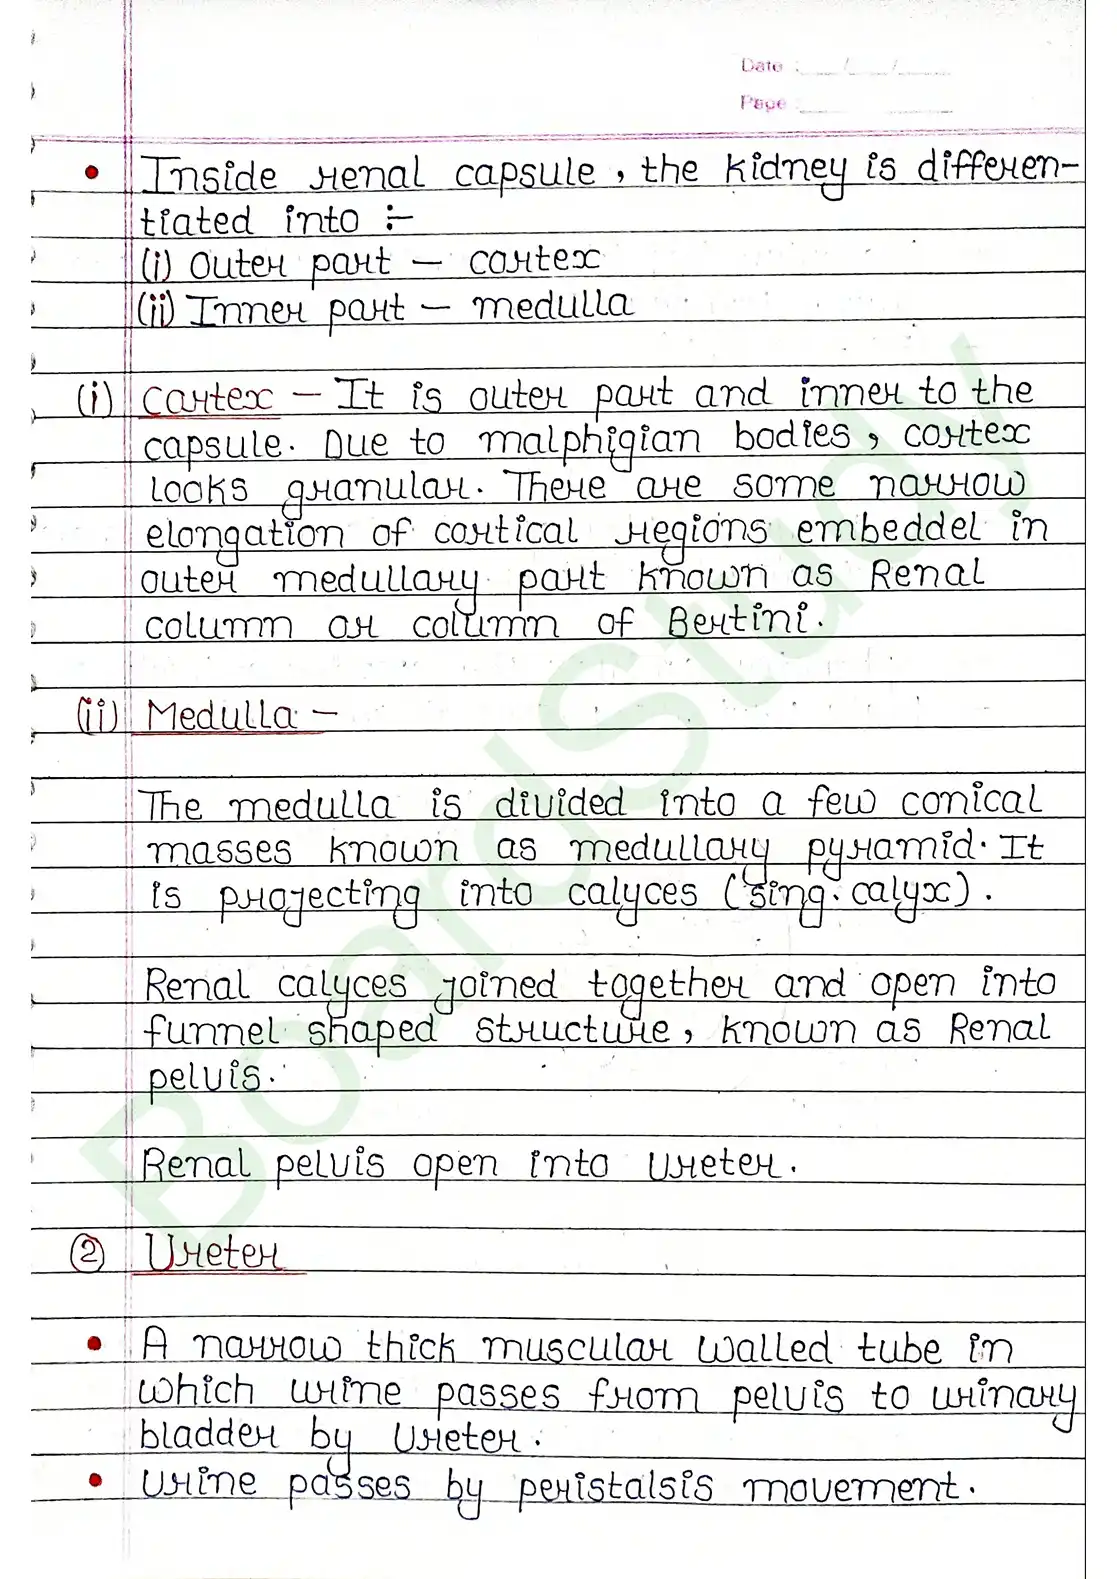 Date : __/__/__
Page : ____
• Inside renal capsule, the kidney is differen-
tiated into :-
(i) Outer part - cortex
(ii) Inner part - medulla
(i) Cortex - It is outer part and inner to the
capsule. Due to malphigian bodies, cortex
looks granular. There are some narrow
elongation of cortical regions embeddel in
outer medullary part known as Renal
column or column of Bertini.
(ii) Medulla -
The medulla is divided into a few conical
masses known as medullary pyramid. It
is projecting into calyces (sing. calyx).
Renal calyces joined together and open into
funnel shaped structure, known as Renal
pelvis.
Renal pelvis open into Ureter.
② Ureter
• A narrow thick muscular walled tube in
which urine passes from pelvis to urinary
bladder by Ureter.
• Urine passes by peristalsis movement.
BoardStudy